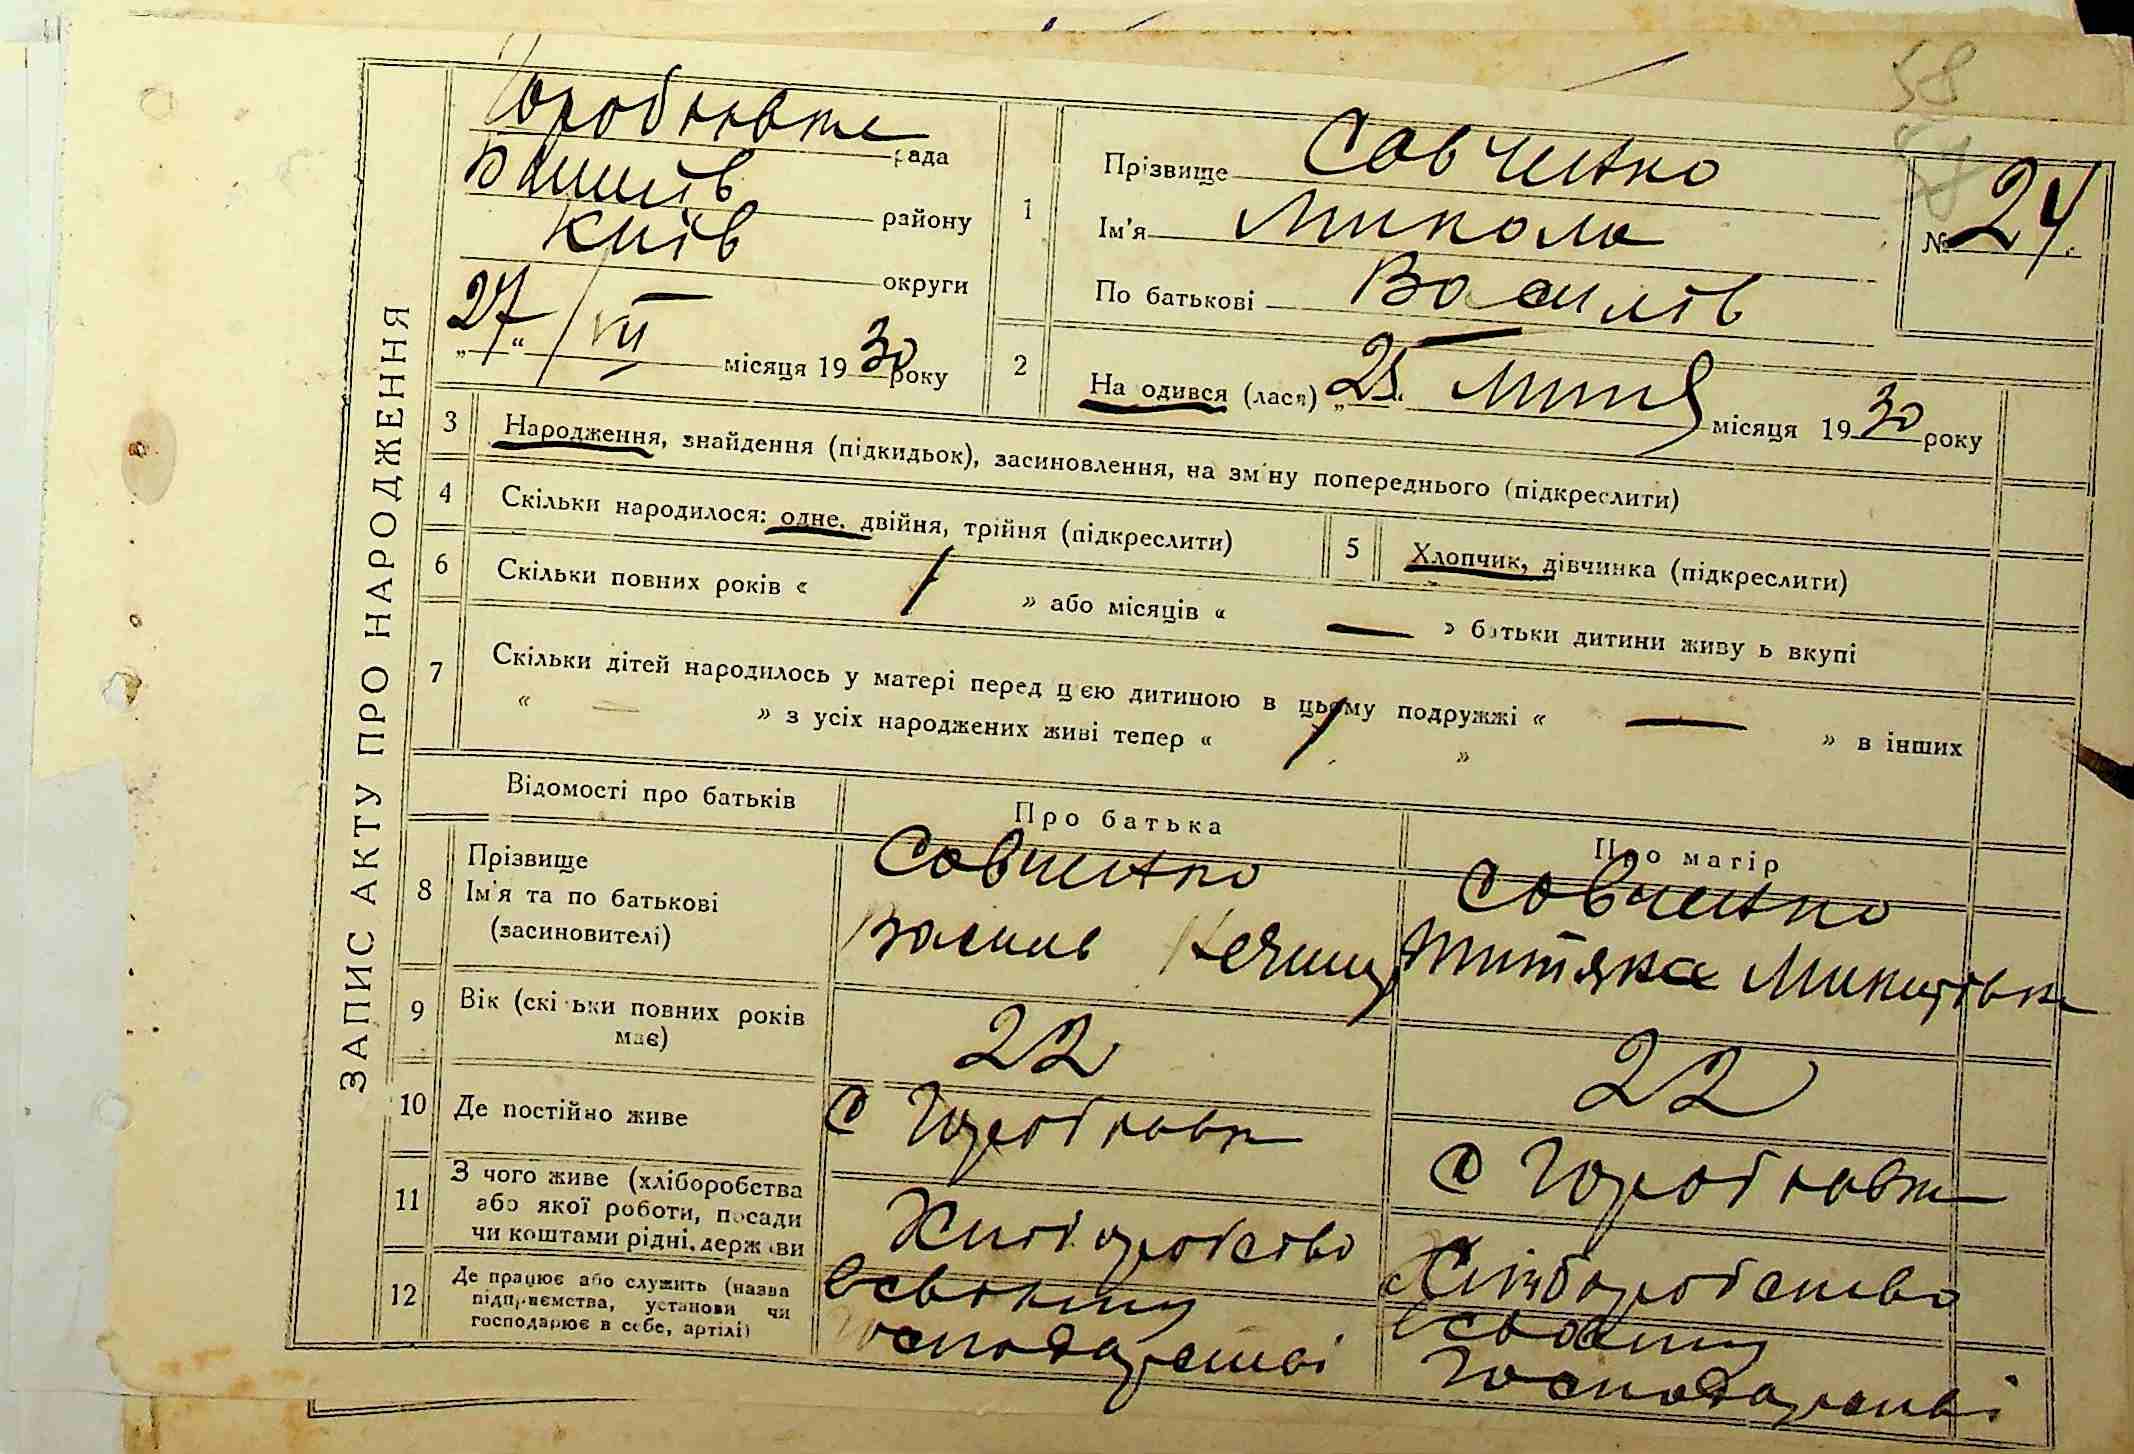 ЗАПИС АКТУ ПРО НАРОДЖЕННЯ
58
рада
району
Київ
округи
„27“ VII місяця 1930 року
1
Прізвище Совченко
Ім'я Микола
По батькові Василів
№ 24
2
На одився (лася) „25“ липня місяця 1930 року
3 Народження, знайдення (підкидьок), засиновлення, на зміну попереднього (підкреслити)
4 Скільки народилося: одне, двійня, трійня (підкреслити)
5 Хлопчик, дівчинка (підкреслити)
6 Скільки повних років « 1 » або місяців « — » батьки дитини живу ь вкупі
7 Скільки дітей народилось у матері перед цією дитиною в цьому подружжі « — » в інших
« — » з усіх народжених живі тепер « 1 »
Відомості про батьків
Про батька
Про матір
8 Прізвище
Ім'я та по батькові
(засиновителі)
Совченко
Василь
Совченко
Микитівна
9 Вік (скі ьки повних років
має)
22
22
10 Де постійно живе
с Горобіївка
с Горобіївка
11 З чого живе (хліборобства
або якої роботи, посади
чи коштами рідні, держави
Хліборобство
Хліборобство
12 Де працює або служить (назва
підприємства, установи чи
господарює в себе, артілі)
в своєму
господарстві
в своєму
господарстві